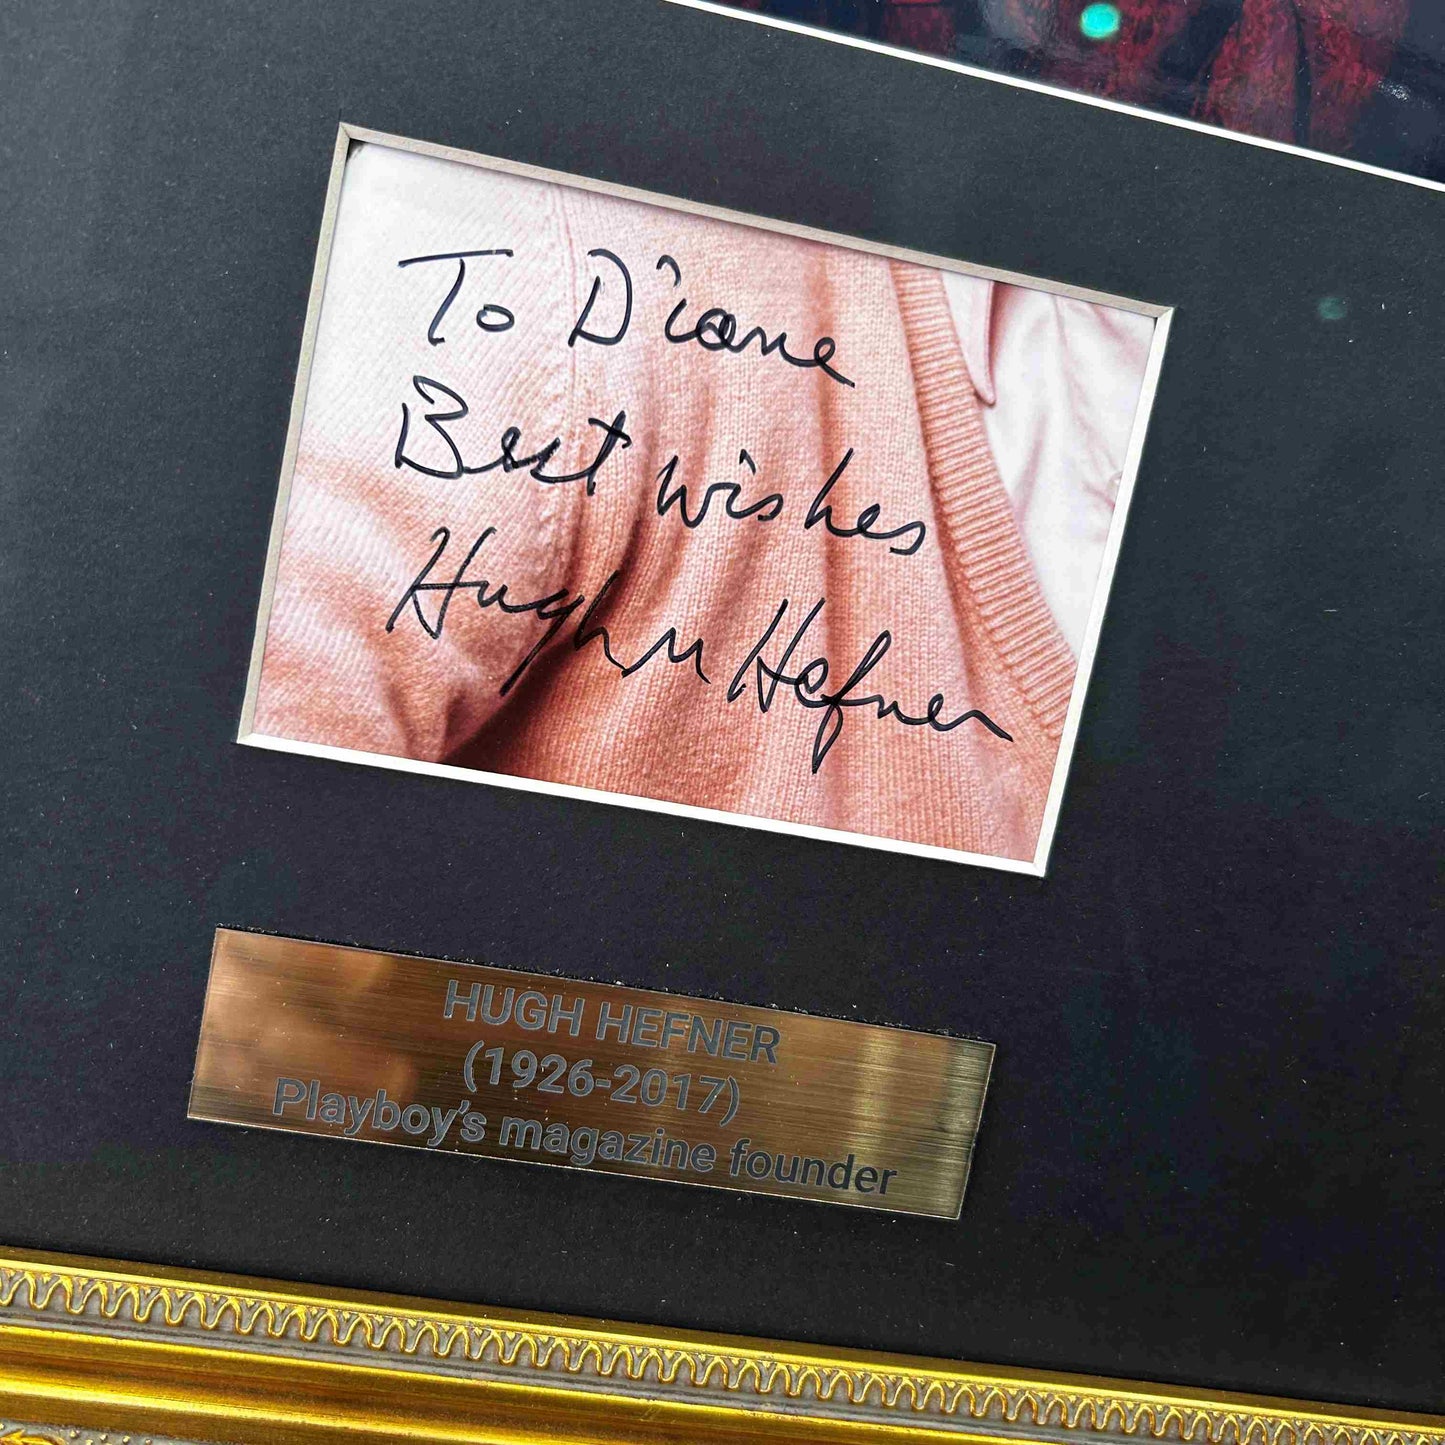 To Diane
Best wishes
Hugh M Hefner
HUGH HEFNER
(1926-2017)
Playboy's magazine founder